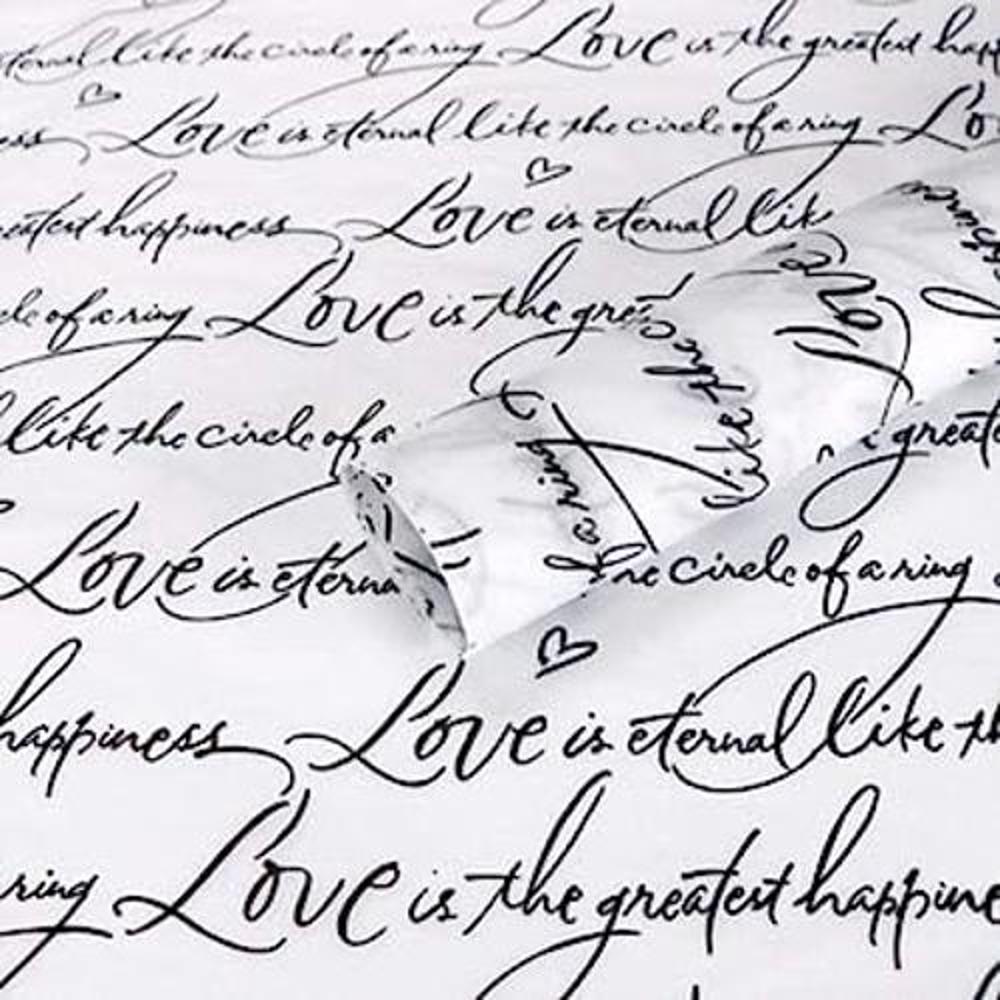 eternal like the circle of a ring Love is the greatest happ
ess Love is eternal like the circle of a ring Lo
eatest happiness Love is eternal lik
cle of a ring Love is the gre
like the circle of a
like the
a ring
greate
Love is eterna
he circle of a ring
happiness Love is eternal like th
ring Love is the greatest happine